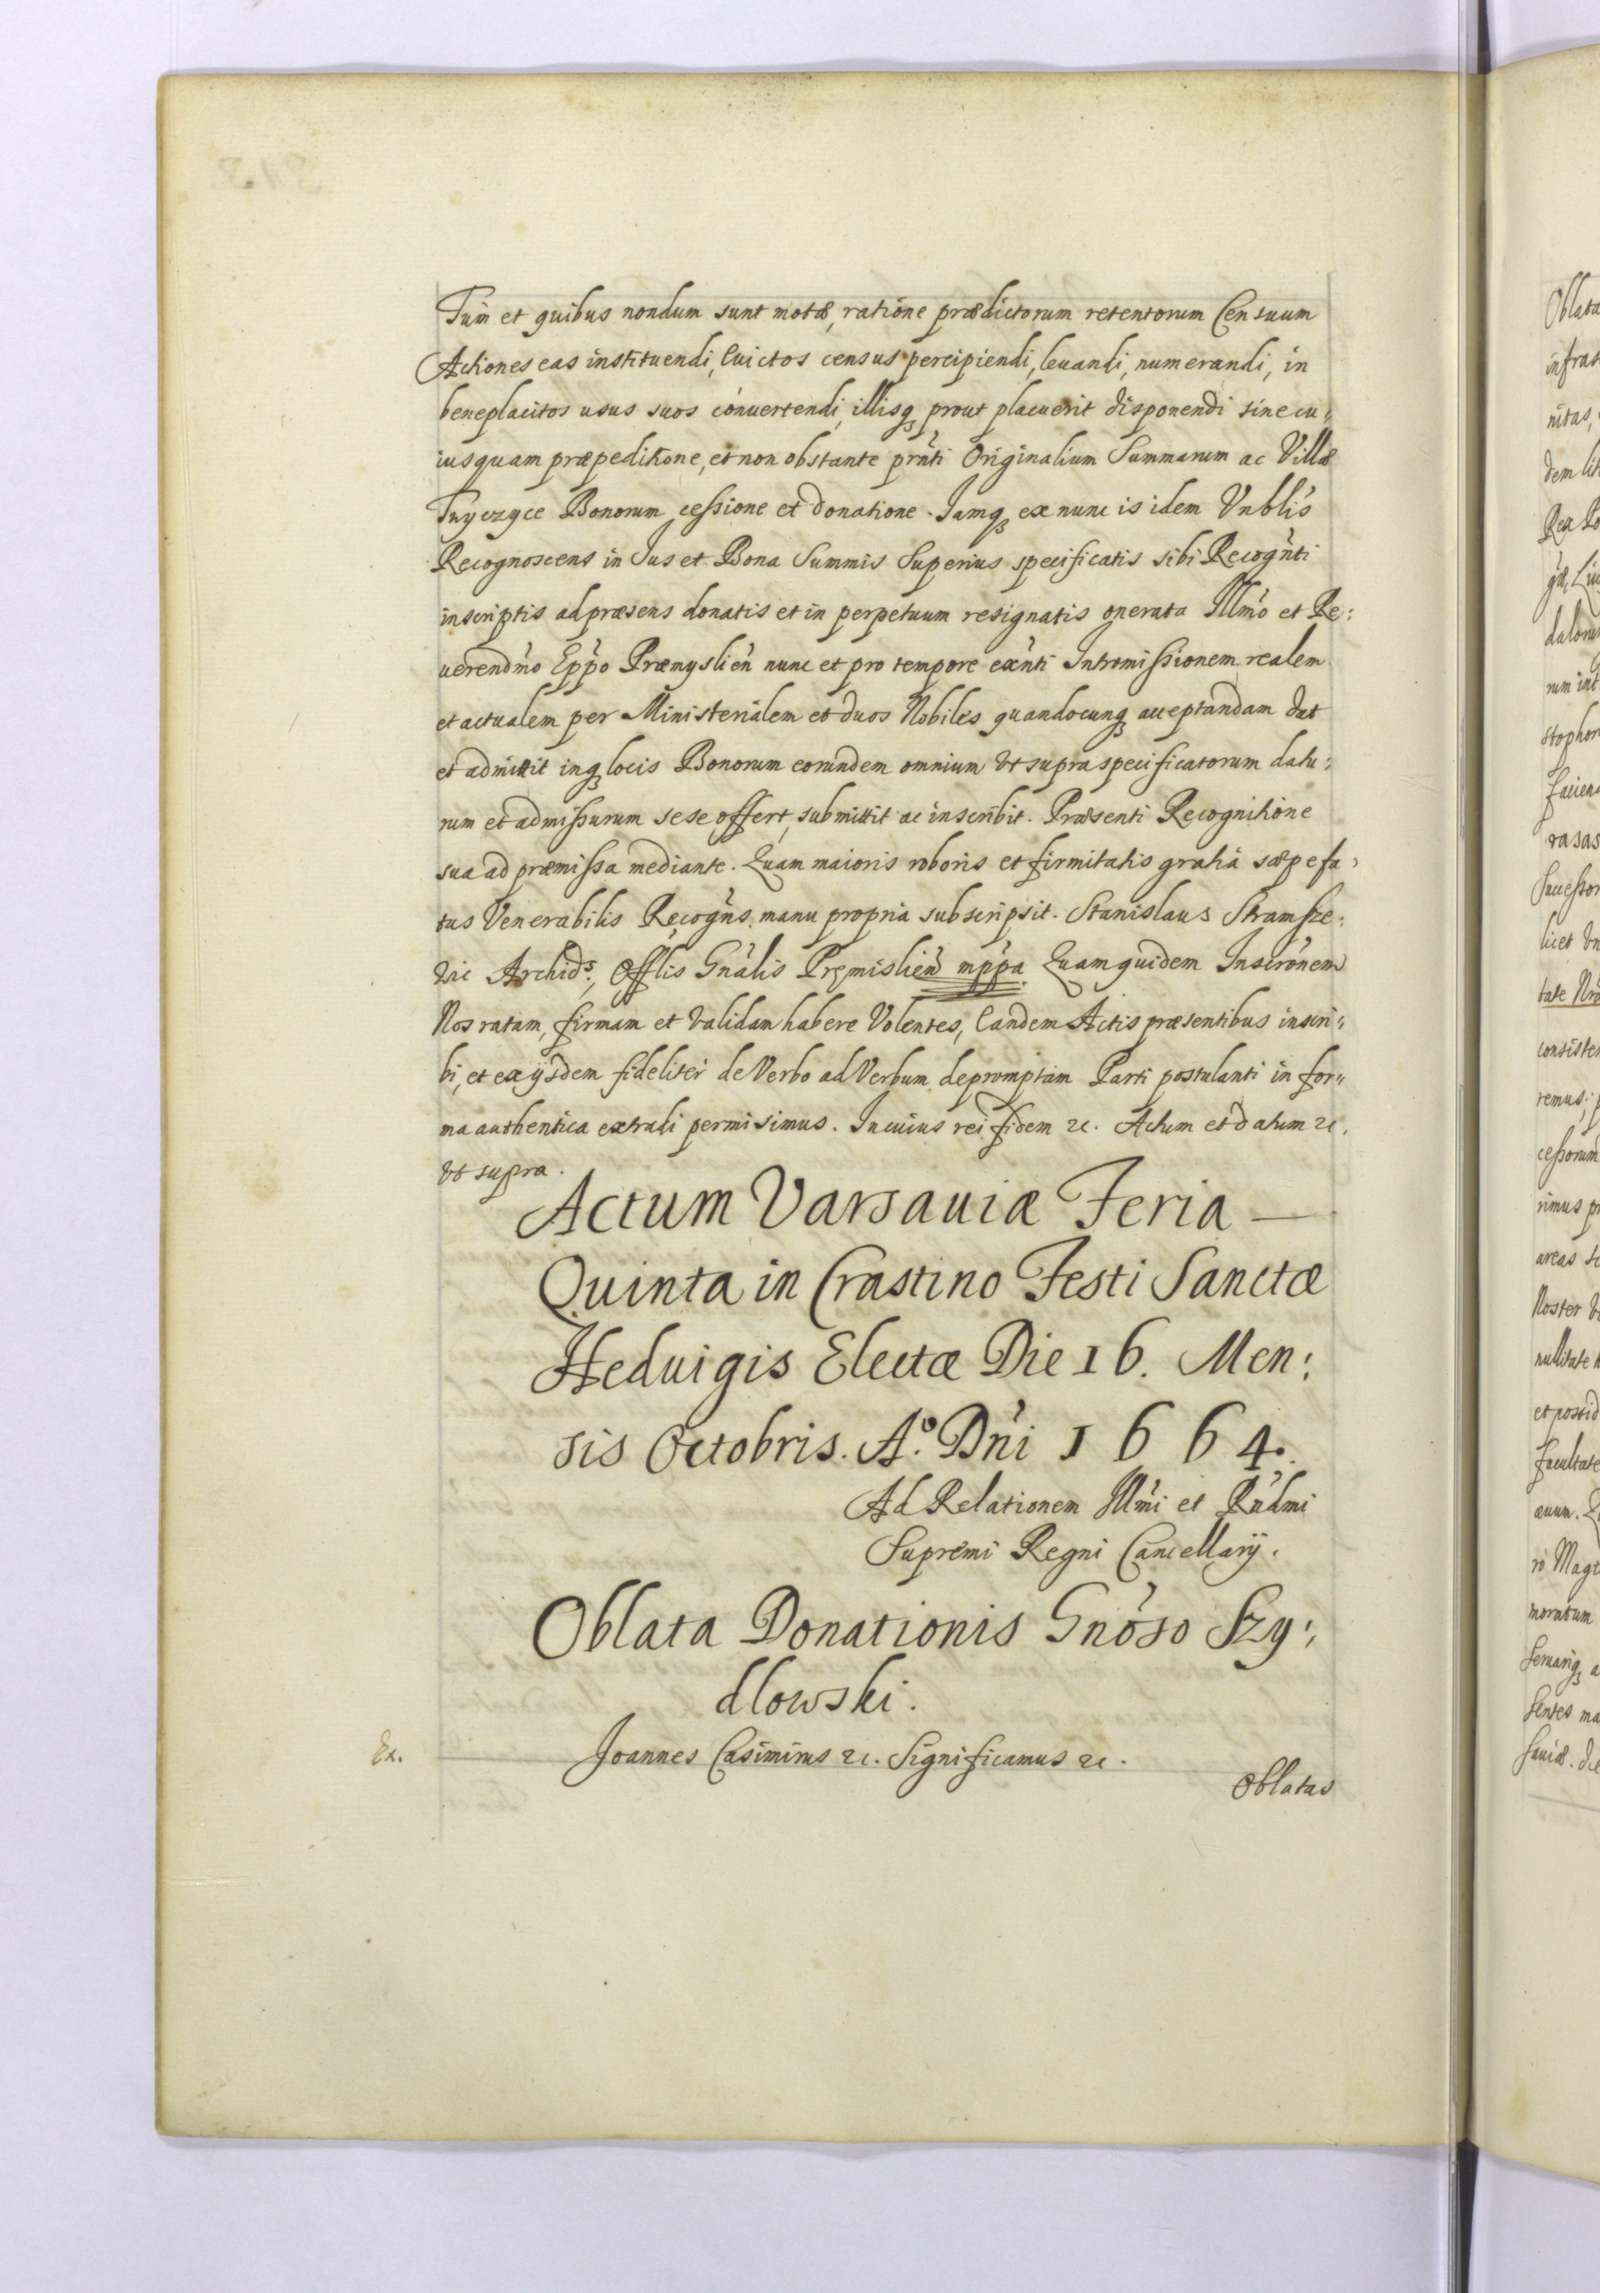 Tum et quibus nondum sunt motæ, ratione prædictorum retentorum Censuum
Actiones eas instituendi, Euictos census percipiendi, leuandi, numerandi, in
beneplacitos usus suos conuertendi, illisq prout placuerit disponendi sine cu:
iusquam præpeditione, et non obstante prnti Originalium Summarum ac Villæ
Tuyczyce Bonorum cessione et donatione. Iamq ex nunc is idem Vnblis
Recognoscens in Ius et Bona Summis Superius specificatis sibi Recognti
inscriptis ad præsens donatis et in perpetuum resignatis onerata Illmo et Re:
uerendmo Eppo Præmyslien nunc et pro tempore exnti Intromissionem realem
et actualem per Ministerialem et duos Nobiles quandocunq acceptandam dat
et admittit inq locis Bonorum eorundem omnium vt supra specificatorum datu:
rum et admissurum sese offert, submittit ac inscribit. Præsenti Recognitione
sua ad præmissa mediante. Quam maioris roboris et firmitatis gratia sæpefa:
tus Venerabilis Recogns manu propria subscripsit. Stanislaus Stramsze:
vic Archids, Offlis Gnalis Pręmislien mppa Quam quidem Inscronem
Nos ratam, firmam et validam habere Volentes, Eandem Actis præsentibus inscri:
bi, et ex ijsdem fideliter de Verbo ad Verbum depromptam Parti postulanti in for:
ma authentica extradi permisimus. In cuius rei fidem &c. Actum et datum &c.
vt supra.
Actum Varsauiæ Feria —
Quinta in Crastino Festi Sanctæ
Heduigis Electæ Die 16. Men:
sis Octobris. Ao. Dni 1664.
Ad Relationem Illmi et Rndmi
Supremi Regni Cancellarij.
Oblata Donationis Gnoso Szy:
dlowski.
Ex. Joannes Casimirus &c. Significamus &c.
Oblatas